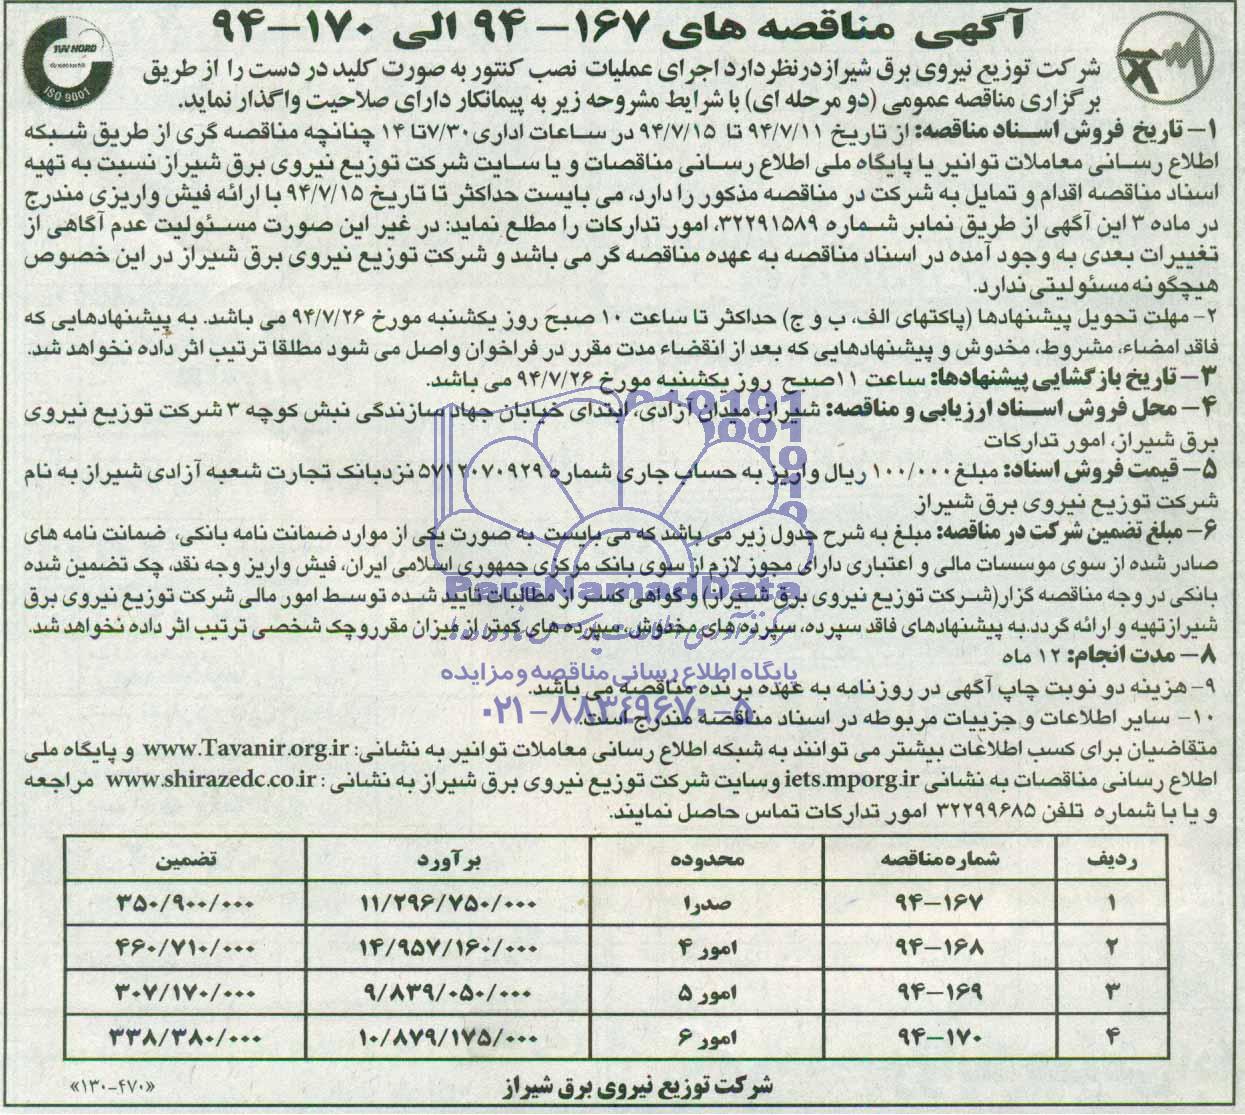 آگهی مناقصه های ۱۶۷–۹۴ الی ۱۷۰–۹۴
شرکت توزیع نیروی برق شیراز در نظر دارد اجرای عملیات نصب کنتور به صورت کلید در دست را از طریق
برگزاری مناقصه عمومی (دو مرحله ای) با شرایط مشروحه زیر به پیمانکار دارای صلاحیت واگذار نماید.
۱– تاریخ فروش اسناد مناقصه: از تاریخ ۹۴/۷/۱۱ تا ۹۴/۷/۱۵ در ساعات اداری ۷/۳۰ تا ۱۴ چنانچه مناقصه گری از طریق شبکه
اطلاع رسانی معاملات توانیر یا پایگاه ملی اطلاع رسانی مناقصات و یا سایت شرکت توزیع نیروی برق شیراز نسبت به تهیه
اسناد مناقصه اقدام و تمایل به شرکت در مناقصه مذکور را دارد، می بایست حداکثر تا تاریخ ۹۴/۷/۱۵ با ارائه فیش واریزی مندرج
در ماده ۳ این آگهی از طریق نمابر شماره ۳۲۲۹۱۵۸۹، امور تدارکات را مطلع نماید: در غیر این صورت مسئولیت عدم آگاهی از
تغییرات بعدی به وجود آمده در اسناد مناقصه به عهده مناقصه گر می باشد و شرکت توزیع نیروی برق شیراز در این خصوص
هیچگونه مسئولیتی ندارد.
۲– مهلت تحویل پیشنهادها (پاکتهای الف، ب و ج) حداکثر تا ساعت ۱۰ صبح روز یکشنبه مورخ ۹۴/۷/۲۶ می باشد. به پیشنهادهایی که
فاقد امضاء، مشروط، مخدوش و پیشنهادهایی که بعد از انقضاء مدت مقرر در فراخوان واصل می شود مطلقا ترتیب اثر داده نخواهد شد.
۳– تاریخ بازگشایی پیشنهادها: ساعت ۱۱صبح روز یکشنبه مورخ ۹۴/۷/۲۶ می باشد.
۴– محل فروش اسناد ارزیابی و مناقصه: شیراز، میدان آزادی، ابتدای خیابان جهاد سازندگی نبش کوچه ۳ شرکت توزیع نیروی
برق شیراز، امور تدارکات
۵– قیمت فروش اسناد: مبلغ ۱۰۰/۰۰۰ ریال واریز به حساب جاری شماره ۵۷۱۲۰۷۰۹۲۹ نزد بانک تجارت شعبه آزادی شیراز به نام
شرکت توزیع نیروی برق شیراز
۶– مبلغ تضمین شرکت در مناقصه: مبلغ به شرح جدول زیر می باشد که می بایست به صورت یکی از موارد ضمانت نامه بانکی، ضمانت نامه های
صادر شده از سوی موسسات مالی و اعتباری دارای مجوز لازم از سوی بانک مرکزی جمهوری اسلامی ایران، فیش واریز وجه نقد، چک تضمین شده
بانکی در وجه مناقصه گزار(شرکت توزیع نیروی برق شیراز) و گواهی کسر از مطالبات تایید شده توسط امور مالی شرکت توزیع نیروی برق
شیراز تهیه و ارائه گردد به پیشنهادهای فاقد سپرده، سپرده های مخدوش، سپرده های کمتر از میزان مقرر و چک شخصی ترتیب اثر داده نخواهد شد.
۸– مدت انجام: ۱۲ ماه
۹– هزینه دو نوبت چاپ آگهی در روزنامه به عهده برنده مناقصه می باشد.
۱۰– سایر اطلاعات و جزییات مربوطه در اسناد مناقصه مندرج است.
متقاضیان برای کسب اطلاعات بیشتر می توانند به شبکه اطلاع رسانی معاملات توانیر به نشانی: www.Tavanir.org.ir و پایگاه ملی
اطلاع رسانی مناقصات به نشانی iets.mporg.ir و سایت شرکت توزیع نیروی برق شیراز به نشانی : www.shirazedc.co.ir مراجعه
و یا با شماره تلفن ۳۲۲۹۹۶۸۵ امور تدارکات تماس حاصل نمایند.
ردیف شماره مناقصه محدوده برآورد تضمین
۱ ۹۴–۱۶۷ صدرا ۱۱/۲۹۶/۷۵۰/۰۰۰ ۳۵۰/۹۰۰/۰۰۰
۲ ۹۴–۱۶۸ امور ۴ ۱۴/۹۵۷/۱۶۰/۰۰۰ ۴۶۰/۷۱۰/۰۰۰
۳ ۹۴–۱۶۹ امور ۵ ۹/۸۳۹/۰۵۰/۰۰۰ ۳۰۷/۱۷۰/۰۰۰
۴ ۹۴–۱۷۰ امور ۶ ۱۰/۸۷۹/۱۷۵/۰۰۰ ۳۳۸/۳۸۰/۰۰۰
شرکت توزیع نیروی برق شیراز
«۱۳۰–۴۷۰»
TÜV NORD
ISO 9001
ParsNamadData
پایگاه اطلاع رسانی مناقصه و مزایده
۰۲۱–۸۸۳۴۹۶۷۰–۵